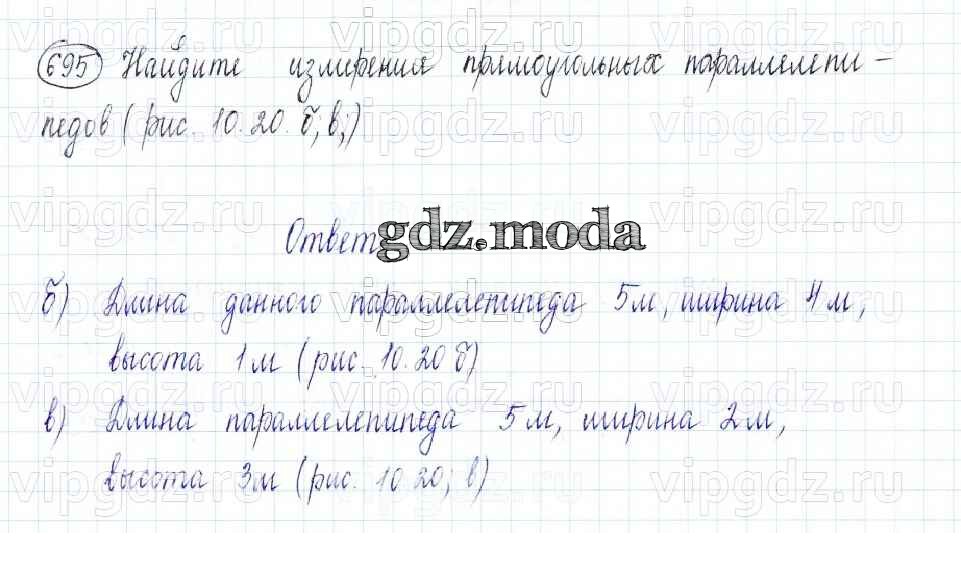 695 Найдите измерения прямоугольных параллелепи-
педов (рис. 10.20. б; в;)
Ответ
gdz.moda
б) Длина данного параллелепипеда 5м, ширина 4м,
высота 1м (рис. 10.20 б)
в) Длина параллелепипеда 5м, ширина 2м,
высота 3м (рис. 10 20; в)
vipgdz.ru